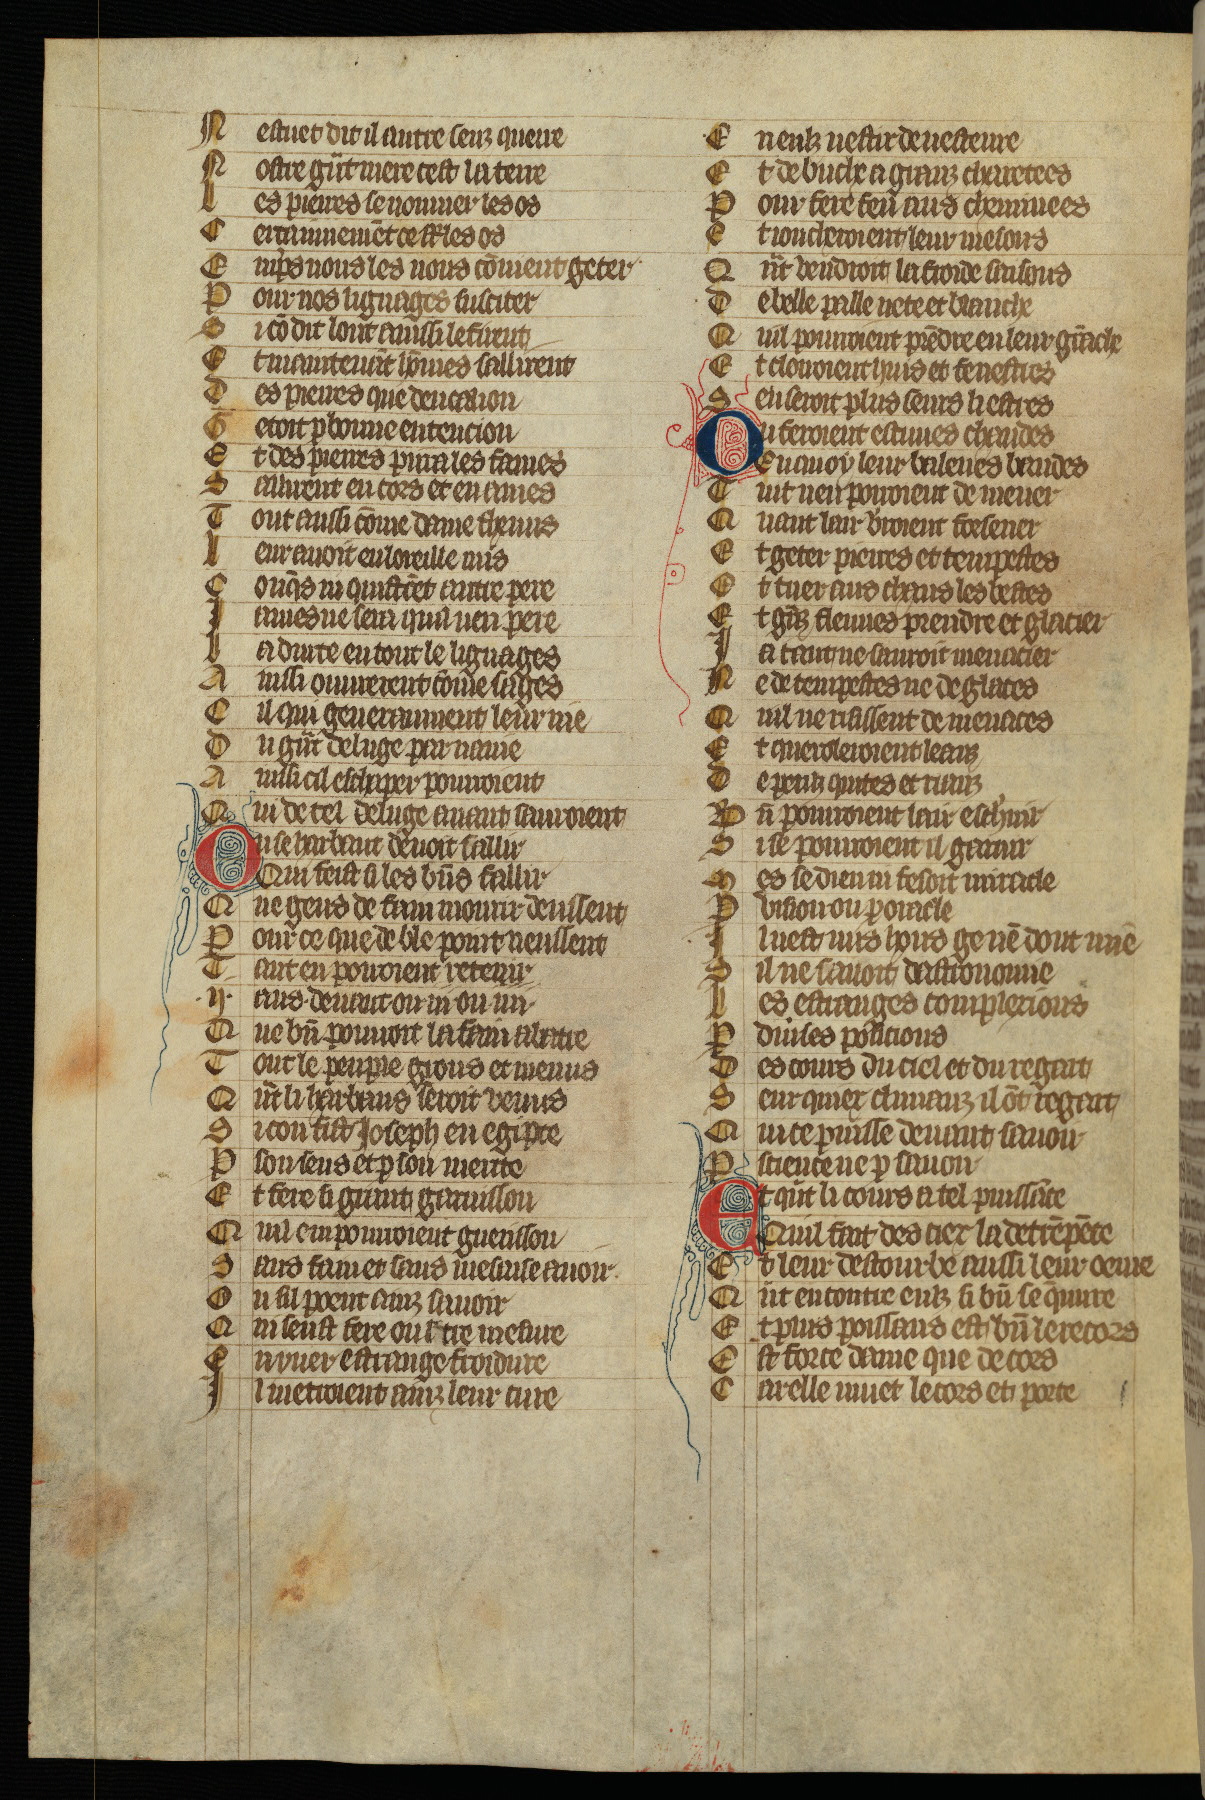 N estuet dit il autre senz querre
N ostre gñt mere cest la terre
L es pierres se nommer les os
C ertainnement ce sōt les os
E mps nous les nous cōvient geter
P our nos lignages susciter
S i cō dit lont ainssi le firent
E t maintenāt hōmes saillirent
D es pierres que deucalion
G etoit p bonne entencion
E t des pierres pirra les fames
S aillirent en cors et en ames
T out aussi cōme dame themis
L eur avoit en loreille mis
C onqs ni quistrēt autre pere
J ames ne sera quil nen pere
L a durte en tout le lignages
A inssi ouvrerent cōme sages
C il qui generanment leur vie
D u gñt deluge par navie
A inssi cil eschaper pourroient
Q ui de tel deluge avant sauroient
O u se harbaut devoit saillir
Qui feist si les biēs faillir
Q ue gens de fain mourir deussent
P our ce que de ble point neussent
T ant en porroient retenir
.ij. ans devant ou iii ou iiii
Q ue bñ pourroit la fain abatre
T out le peuple grous et menus
Q ñt li harbaus seroit venus
S i con fist Joseph en egipte
P son sens et p son merite
E t fere si grant garnison
Q uil em pourroient guerison
S ans fain et sans mesaise avoir
O u sil poent ainz savoir
Q ui seust fere oultre mesure
E n yver estrange froidure
J l metroient ainz leur cure
E n eulz vestir de vesteure
E t de buche a granz charretees
P our fere feu aus cheminees
E t joncheroient leur mesons
Q ñt vendroit la froide saisons
D e belle paille nete et blanche
Q uil pourroient prēdre en leur grāche
E t clorroient huis et fenestres
S en seroit plus seurs li estres
O u feroient estuves chaudes
En quoy leur baleries baudes
T uit nu porroient demener
Q uant lair vroient forsener
E t geter pierres et tempestes
E t tuer aus chans les bestes
E t grāz fleuves prendre et glacier
J a tant ne sauroit menacier
N e de tempestes ne de glaces
Q uil ne risissent de menaces
E t queroleroient leanz
D e periz quites et rianz
B ñ pourroient lair eschuir
S i se pourroient il garnir
M es se dieu ni fesoit miracle
P vision ou p oracle
J l nest nus hons ge nē dout mie
S il ne savoit dastronomie
L es estranges complexions
P diverses posicions
D es cours du ciel et du regart
S eur quiex climaz il ōt regart
Q ui ce puisse devant savoir
P science ne p savoir
E t qñt li cours a tel puissāce
Quil fait des ciex la detrēpēce
E t leur destourbe aussi leur oevre
Q ñt encontre eulz si bñ se queuvre
E t plus poissans est bñ le recors
E st force dame que de cors
C ar elle muet le cors et porte